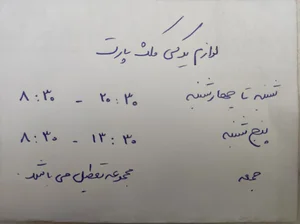 لوازم یدکی ملک پارت
شنبه تا چهارشنبه ۲۰:۳۰ - ۸:۳۰
پنج شنبه ۱۳:۳۰ - ۸:۳۰
جمعه مجموعه تعطیل می باشد.